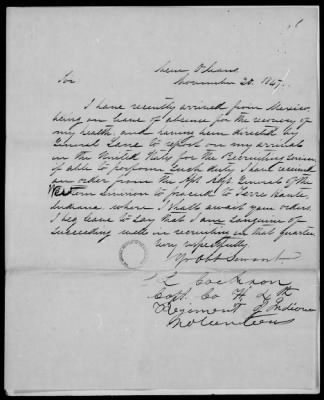 New Orleans
November 20. 1847.
Sir
I have recently arrived from Mexico,
being on leave of absence for the recovery of
my health, and having been directed by
General Lane to report on my arrival
in the United States for the Recruiting service
if able to perform such duty, I have received
an order from the Adjt General of the
Western Division to proceed to Terre Haute,
Indiana where I shall await your orders.
I beg leave to say that I am sanguine of
succeeding well in recruiting in that quarter
Very respectfully
Yr obt servant.
Cockron
Capt. Co H 4th
Regiment Indiana
Volunteers